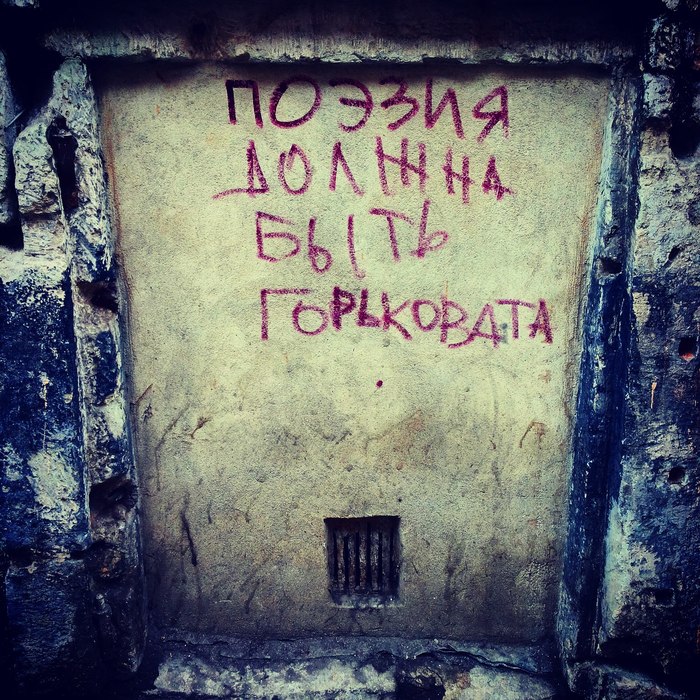 ПОЭЗИЯ
ДОЛЖНА
БЫТЬ
ГОРЬКОВАТА